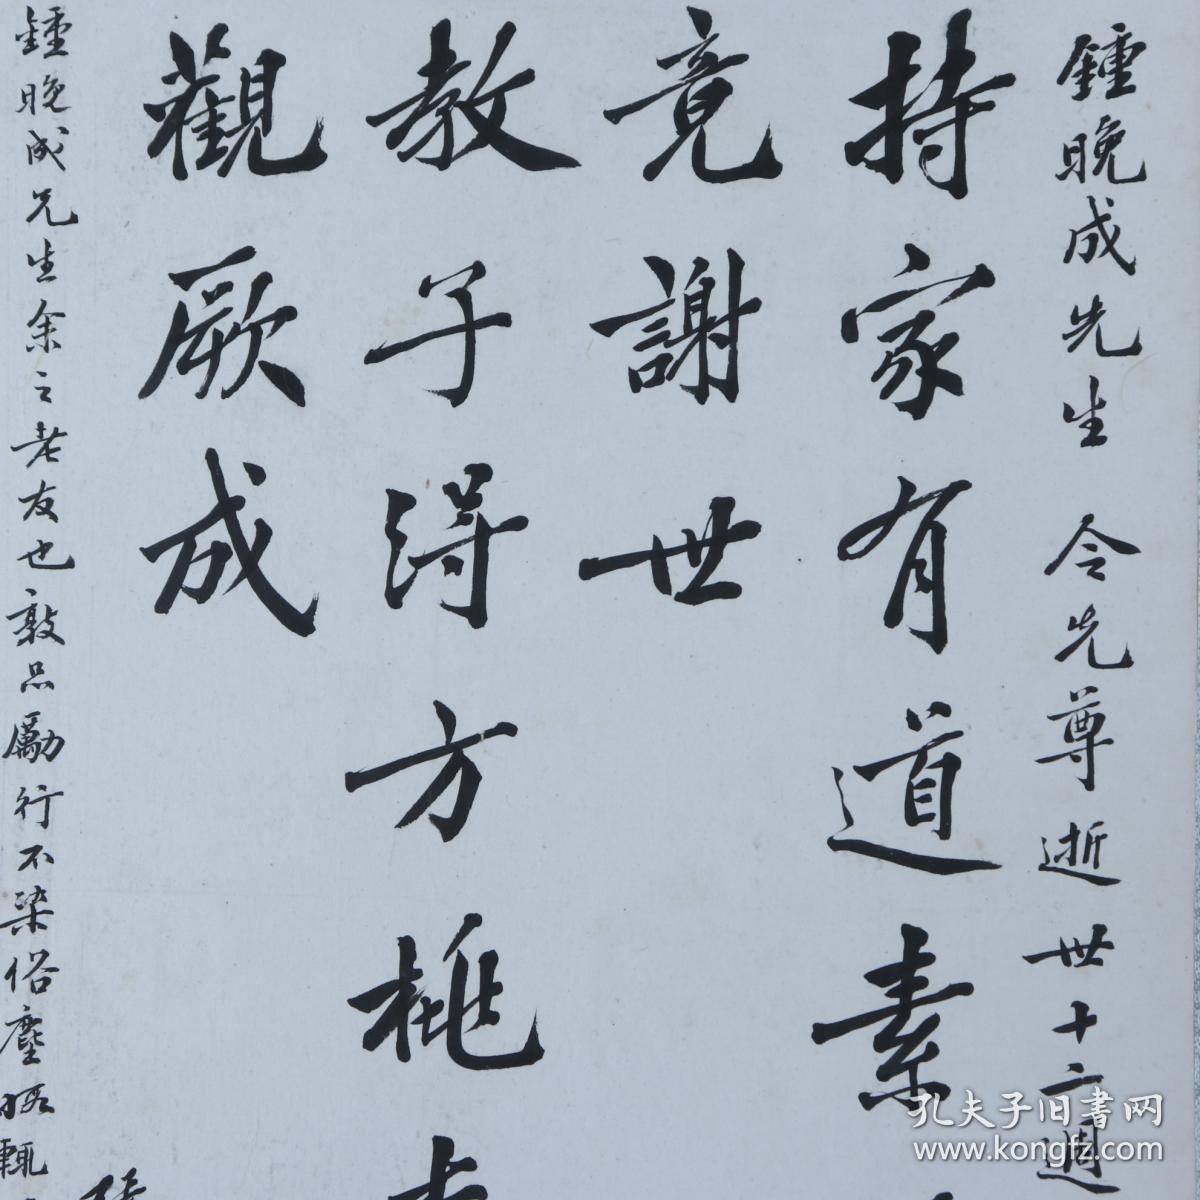 鍾晚成先生 令先尊逝世十二週
持家有道素
竟謝世
教子得方桃
觀厥成
鍾晚成兄生余之老友也敦品勵行不染俗塵暇輒
孔夫子旧书网
www.kongfz.com